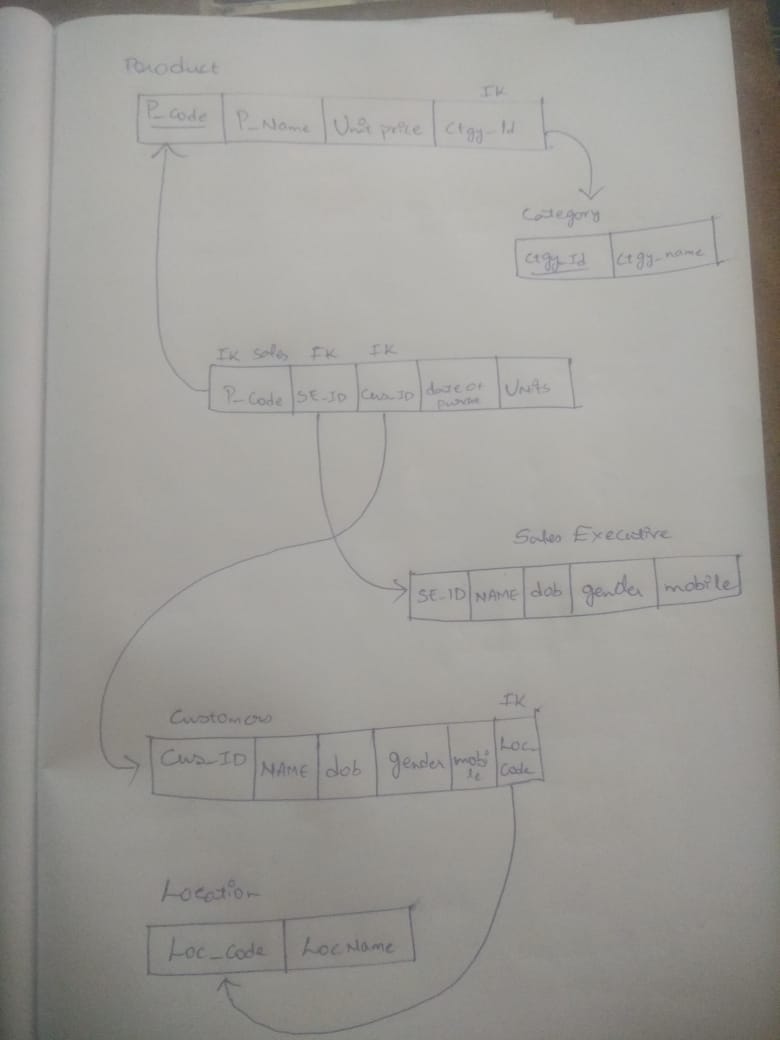 Product
IK
P_Code P_Name Unit price Ctgy_Id
Category
Ctgy_Id Ctgy_name
IK Sales IK IK
P_Code SE_ID Cus_ID date of Units
Sales Executive
SE_ID NAME dob gender mobile
IK
Customers
Cus_ID NAME dob gender mobi Loc_
le Code
Location
Loc_Code LocName